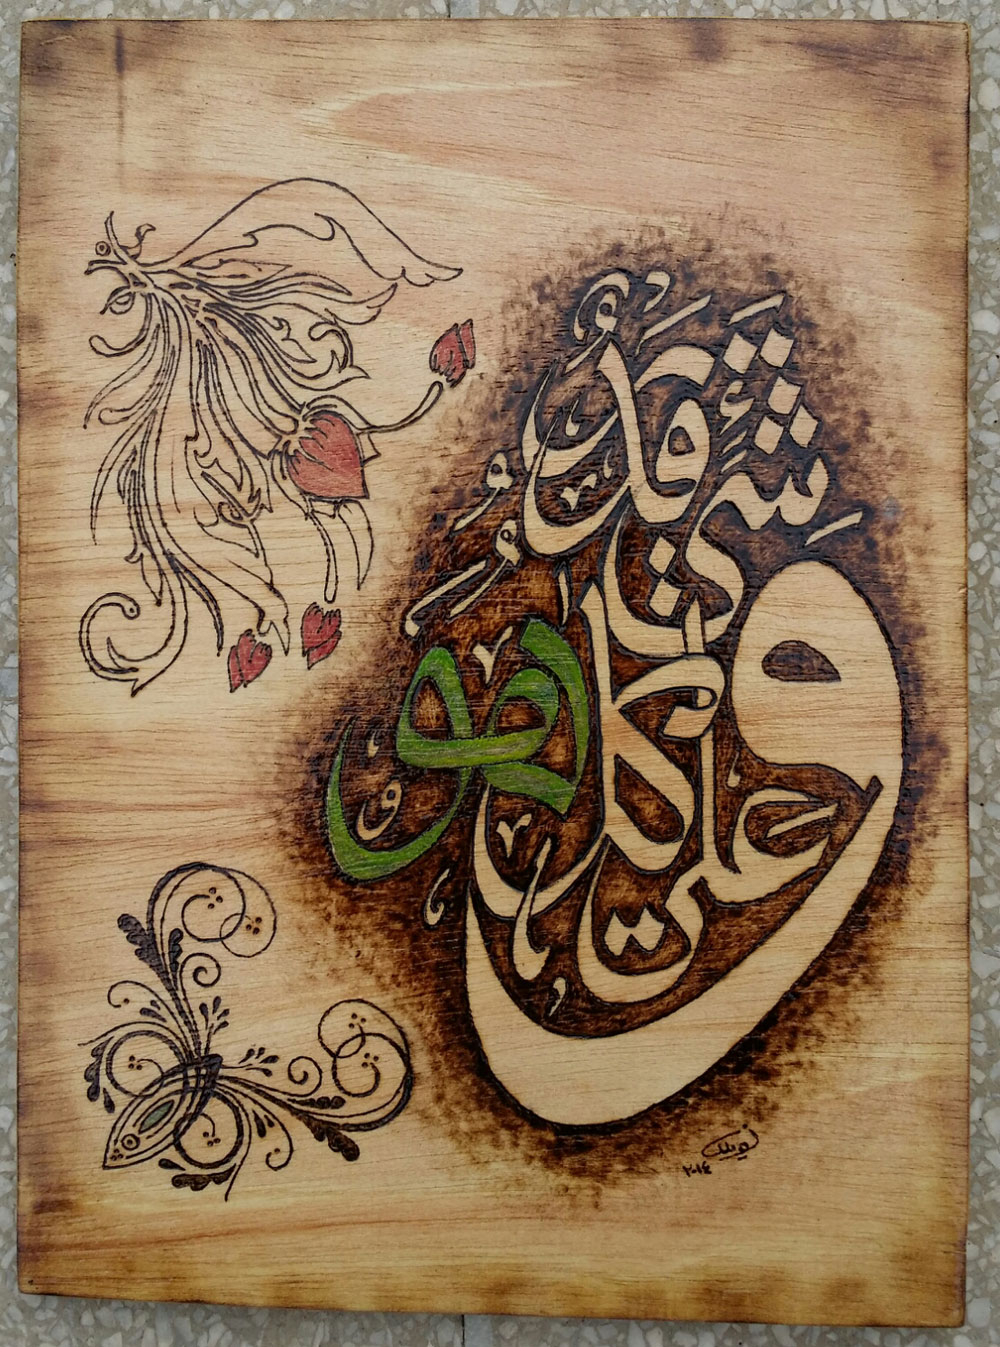 وهو على كل شيء قدير
٢٠١٤